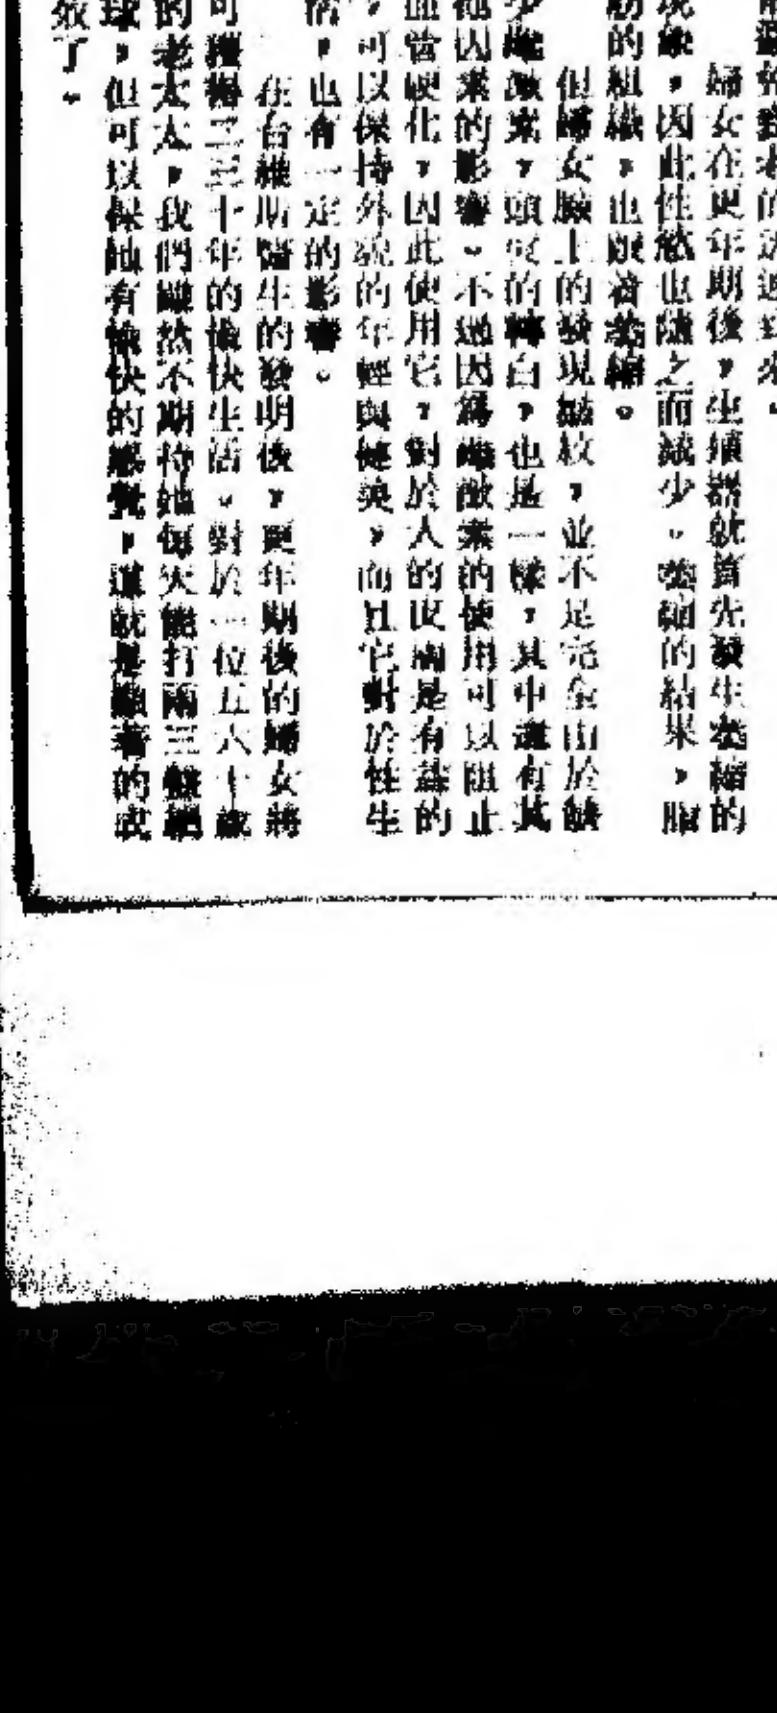 婦女在更年期後，生殖器就首先發生萎縮的
現象，因此性慾也隨之而減少。萎縮的結果，脂
肪的組織，也跟着萎縮。
但婦女臉上的發現皺紋，並不是完全由於缺
少雌激素，頭髮的轉白，也是一樣，其中還有其
他因素的影響。不過因爲雌激素的使用可以阻止
血管硬化，因此使用它，對於人的皮膚是有益的
，可以保持外貌的年輕與健美，而且它對於性生
活，也有一定的影響。
在台維斯醫生的發明後，更年期後的婦女將
可獲得二三十年的愉快生活。對於一位五六十歲
的老太太，我們雖然不期待她每天能打兩三盤網
球，但可以保她有愉快的感覺，這就是顯著的成
效了。